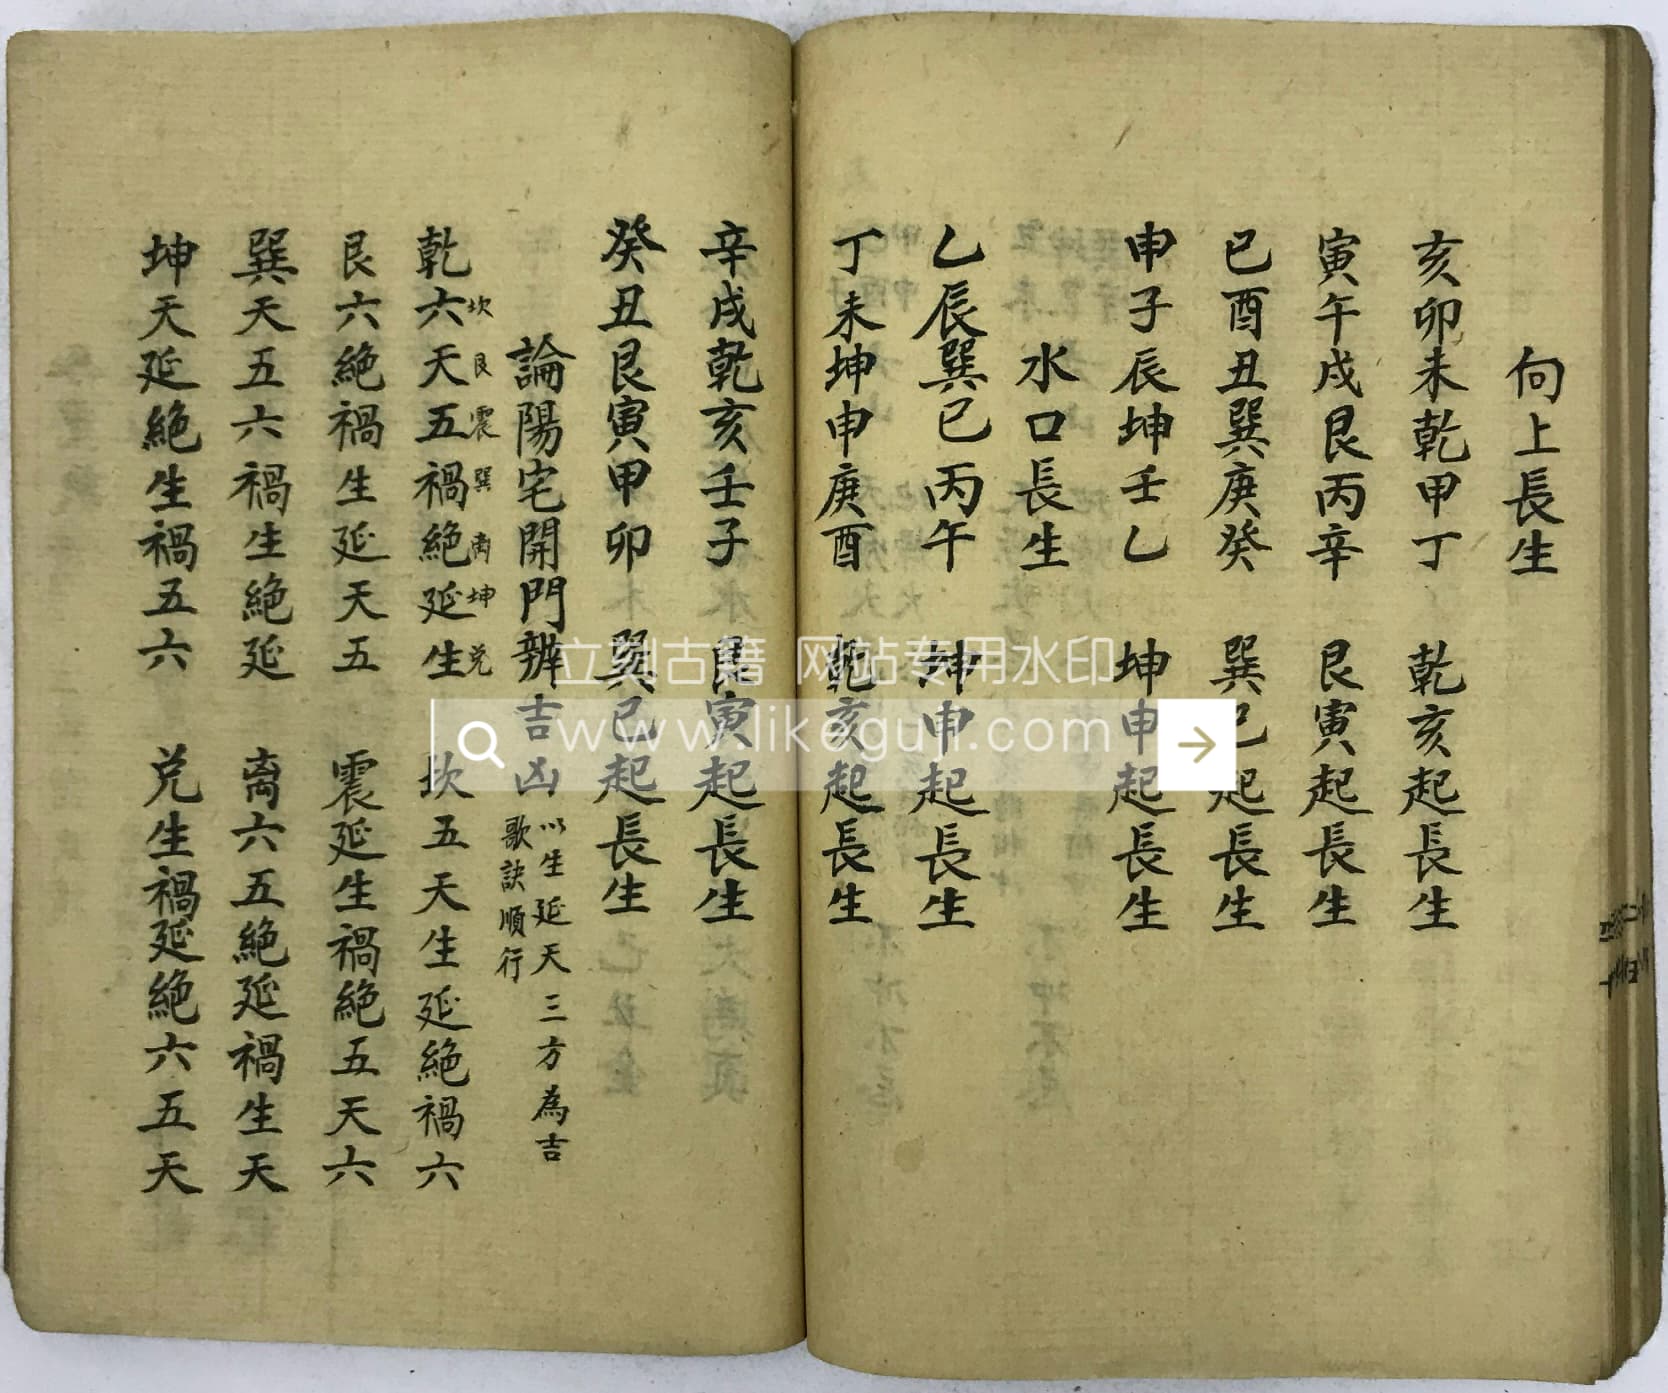 向上長生
亥卯未乾甲丁 乾亥起長生
寅午戌艮丙辛 艮寅起長生
巳酉丑巽庚癸 巽巳起長生
申子辰坤壬乙 坤申起長生
水口長生
乙辰巽巳丙午 坤申起長生
丁未坤申庚酉 乾亥起長生
辛戌乾亥壬子 艮寅起長生
癸丑艮寅甲卯 巽巳起長生
論陽宅開門辨吉凶
以生延天三方為吉
歌訣順行
坎艮震巽离坤兌
乾六天五禍絕延生 坎五天生延絕禍六
艮六絕禍生延天五 震延生禍絕五天六
巽天五六禍生絕延 离六五絕延禍生天
坤天延絕生禍五六 兌生禍延絕六五天
立刻古籍 网站专用水印
www.likeguji.com